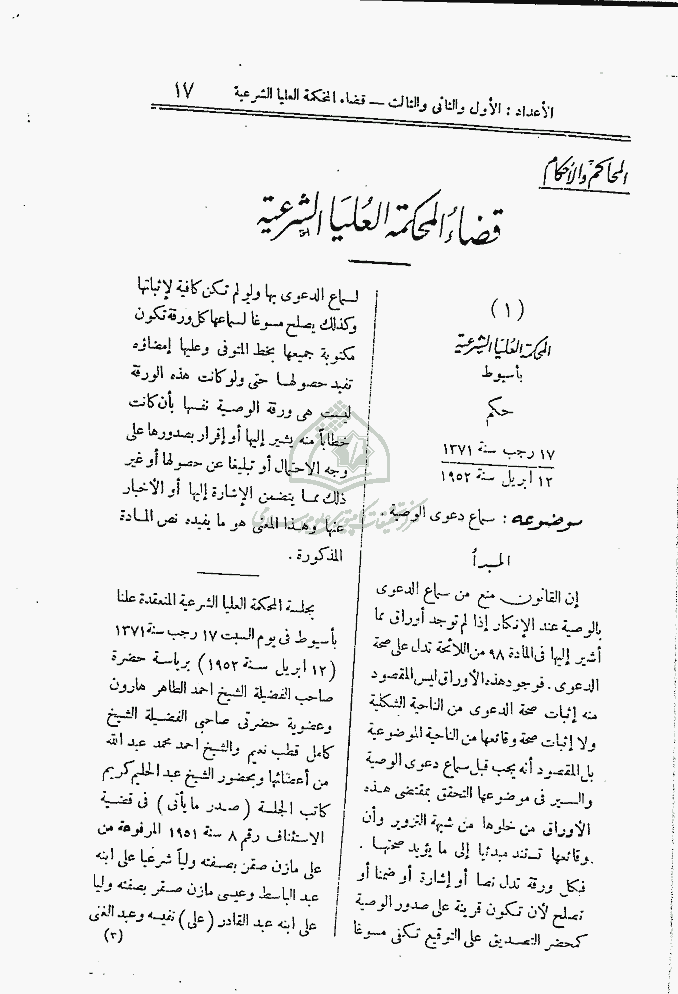 الأعداد : الأول والثانى والثالث — قضاء المحكمة العليا الشرعية ١٧
المحاكم والأحكام
قضاء المحكمة العليا الشرعية
( ١ )
المحكمة العليا الشرعية
بأسيوط
حكم
١٧ رجب سنة ١٣٧١
١٢ أبريل سنة ١٩٥٢
موضوعه : سماع دعوى الوصية .
المبدأ
إن القانون منع من سماع الدعوى
بالوصية عند الإنكار إذا لم توجد أوراق مما
أشير إليها فى المادة ٩٨ من اللائحة تدل على صحة
الدعوى . فوجود هذه الأوراق ليس المقصود
منه إثبات صحة الدعوى من الناحية الشكلية
ولا إثبات صحة وقائعها من الناحية الموضوعية
بل المقصود أنه يجب قبل سماع دعوى الوصية
والسير فى موضوعها التحقق بمقتضى هذه
الأوراق من خلوها من شبهة التزوير وأن
وقائعها تستند مبدئيا إلى ما يؤيد صحتها .
فكل ورقة تدل نصا أو إشارة أو ضمنا أو
تصلح لأن تكون قرينة على صدور الوصية
كمحضر التصديق على التوقيع تكفى مسوغا
لسماع الدعوى بها ولو لم تكن كافية لإثباتها
وكذلك يصلح مسوغا لسماعها كل ورقة تكون
مكتوبة جميعها بخط المتوفى وعليها إمضاؤه
تفيد حصولها حتى ولو كانت هذه الورقة
ليست هى ورقة الوصية نفسها بأن كانت
خطاباً منه يشير إليها أو إقرار بصدورها على
وجه الاحتمال أو تبليغا عن حصولها أو غير
ذلك مما يتضمن الإشارة إليها أو الأخبار
عنها وهذا المعنى هو ما يفيده نص المادة
المذكورة .
بجلسة المحكمة العليا الشرعية المنعقدة علنا
بأسيوط فى يوم السبت ١٧ رجب سنة ١٣٧١
(١٢ أبريل سنة ١٩٥٢) برياسة حضرة
صاحب الفضيلة الشيخ احمد الطاهر هارون
وعضوية حضرتى صاحبى الفضيلة الشيخ
كامل قطب نعيم والشيخ احمد محمد عبد الله
من أعضائها وبحضور الشيخ عبد الحليم كريم
كاتب الجلسة (صدر ما يأتى) فى قضية
الاستئناف رقم ٨ سنة ١٩٥١ المرفوعة من
على مازن صقر بصفته ولياً شرعيا على ابنه
عبد الباسط وعيسى مازن صقر بصفته وليا
على ابنه عبد القادر (على) نفيسه وعبد الغنى
(٢)